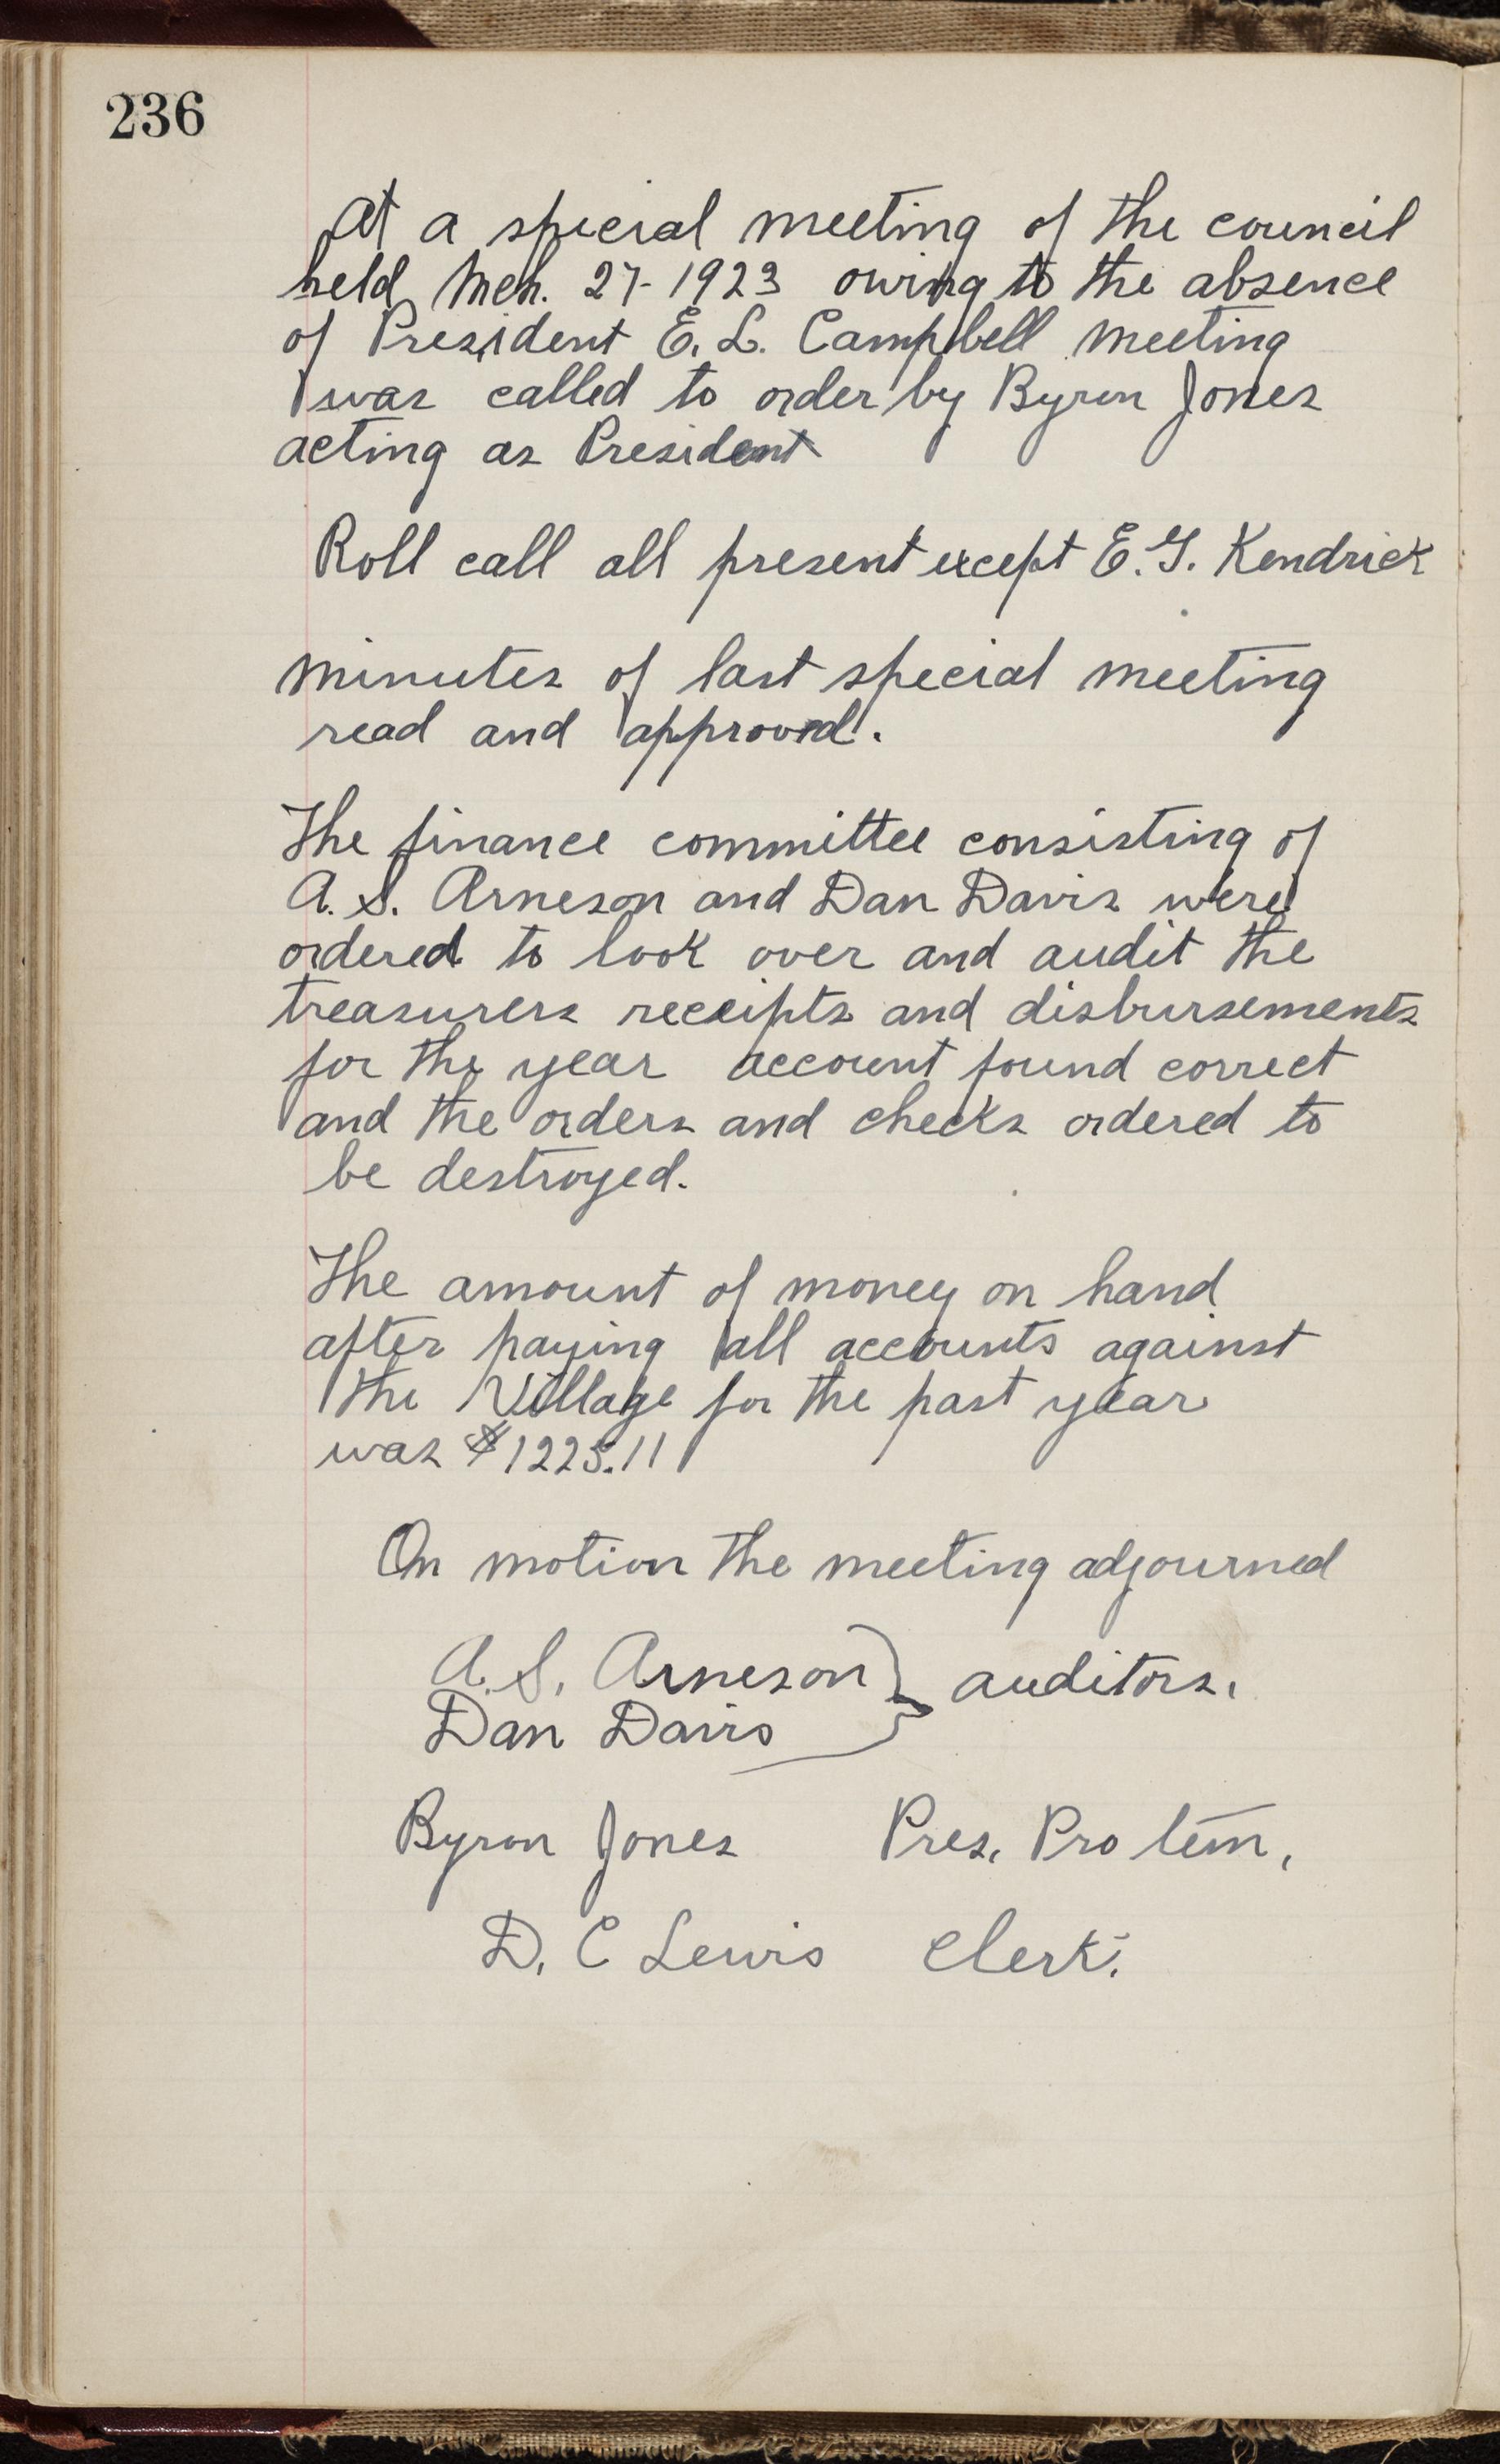 236
At a special meeting of the council
held Mch. 27-1923 owing to the absence
of President E. L. Campbell meeting
was called to order by Byron Jones
acting as President
Roll call all present except E. G. Kendrick
minutes of last special meeting
read and approved.
The finance committee consisting of
A. S. Arneson and Dan Davis were
ordered to look over and audit the
treasurers receipts and disbursements
for the year account found correct
and the orders and checks ordered to
be destroyed.
The amount of money on hand
after paying all accounts against
the Village for the past year
was $1225.11
On motion the meeting adjourned
A. S. Arneson } auditors.
Dan Davis
Byron Jones Pres. Pro tem.
D. C Lewis Clerk.